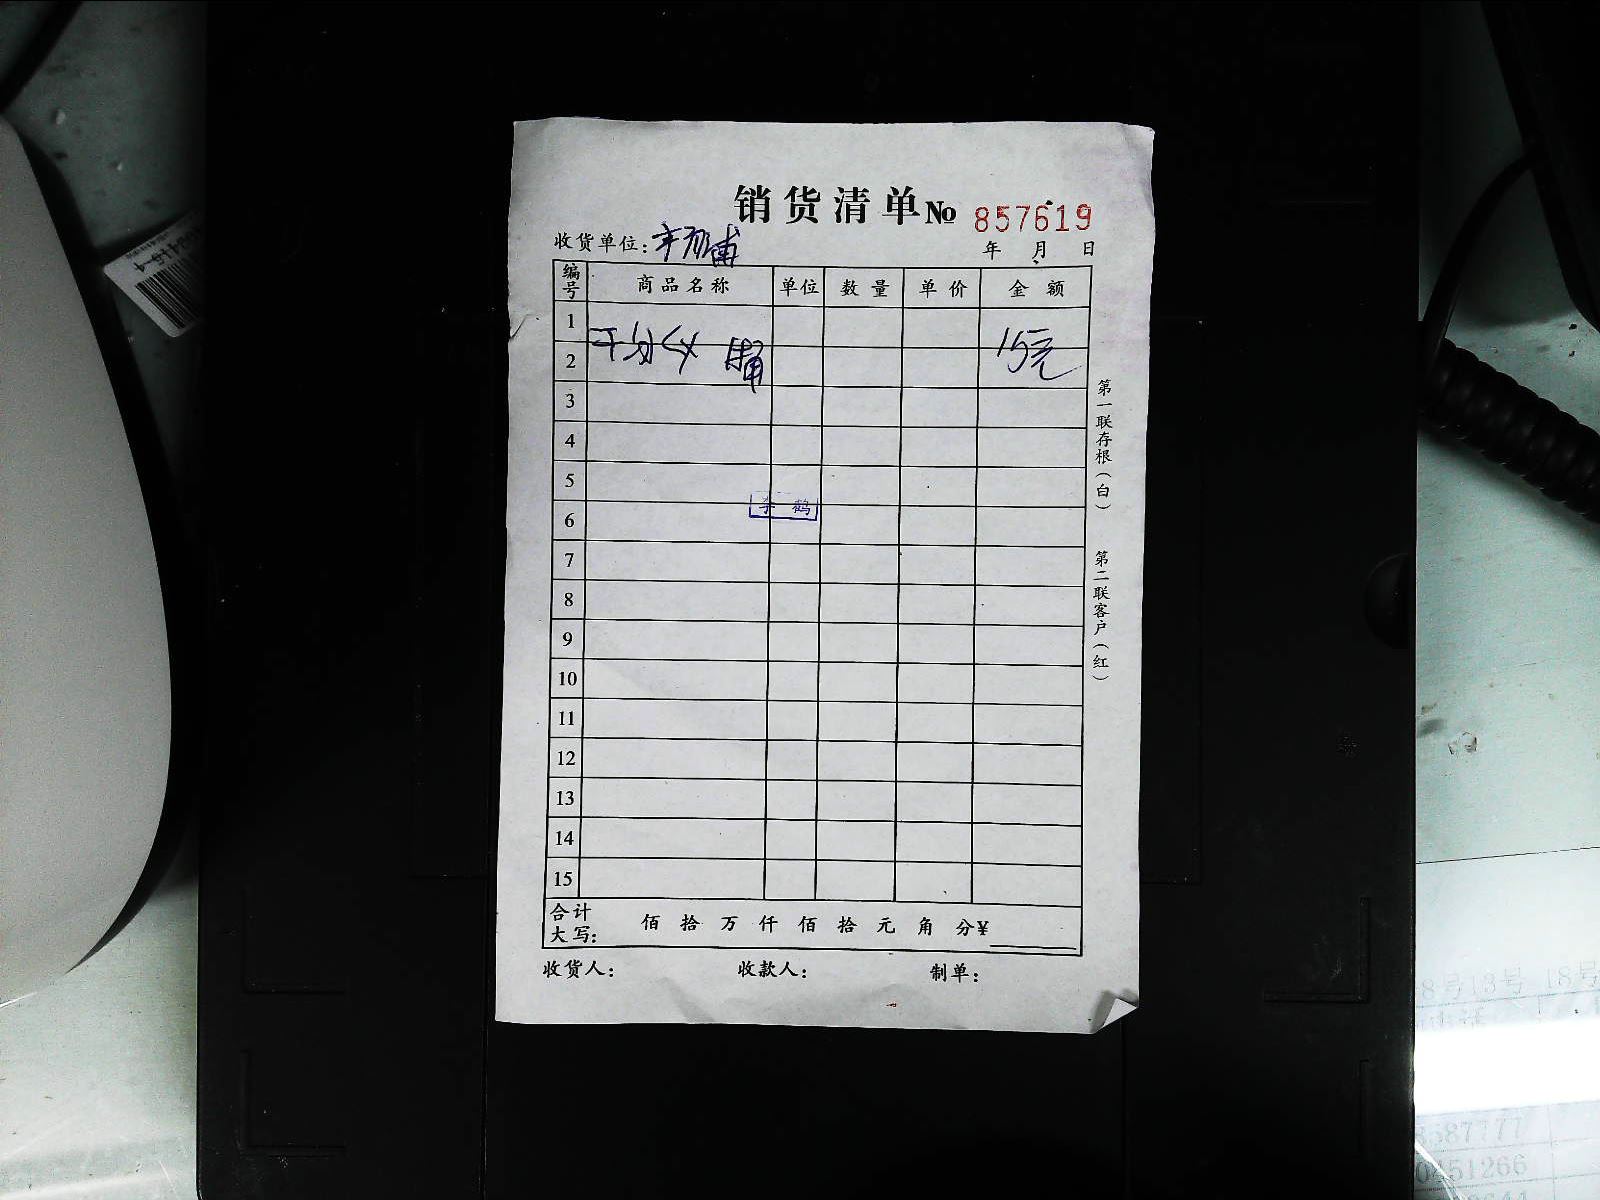 销货清单 № 857619
收货单位:
年 月 日
编号 商品名称 单位 数量 单价 金额
1
2 15元
3
4
5
6
7
8
9
10
11
12
13
14
15
合计大写: 佰 拾 万 仟 佰 拾 元 角 分 ¥
收货人: 收款人: 制单:
第一联存根(白)
第二联客户(红)
李 鹤
8号13号 18号
8587777
0451266